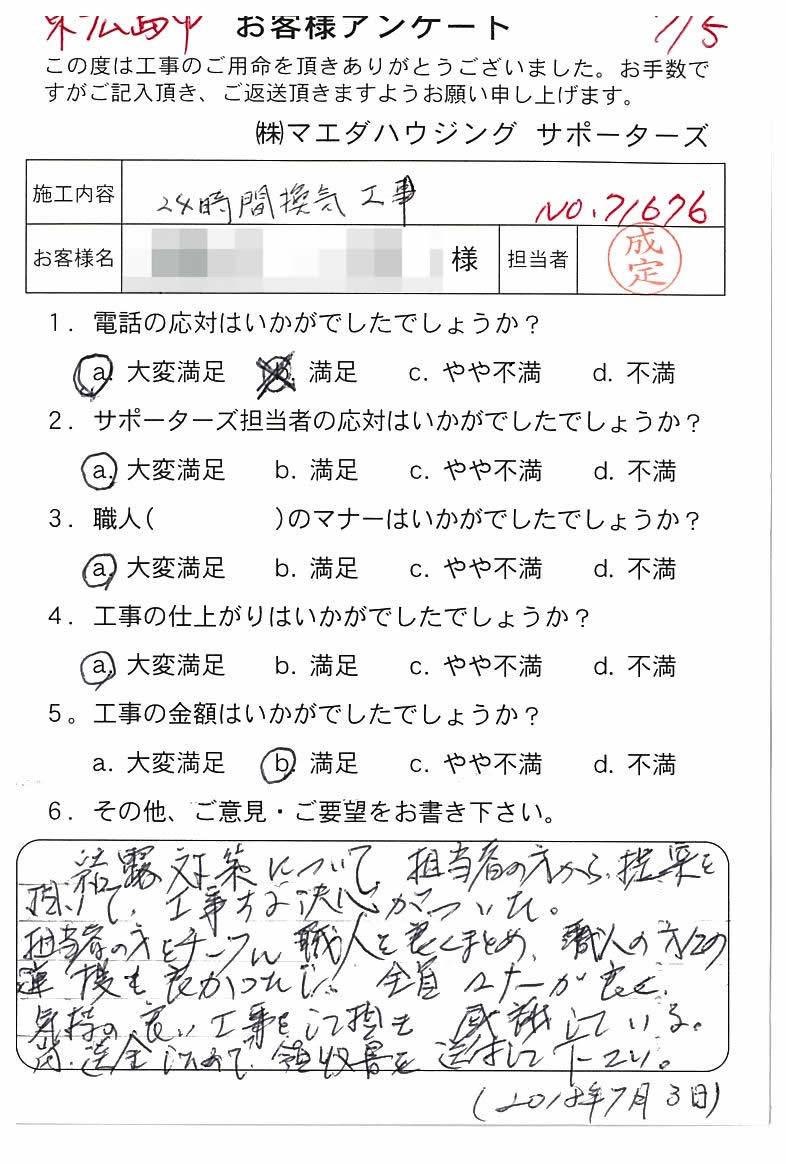 東広島市 お客様アンケート 7/5
この度は工事のご用命を頂きありがとうございました。お手数で
すがご記入頂き、ご返送頂きますようお願い申し上げます。
㈱マエダハウジング サポーターズ
施工内容 24時間換気工事 NO.71676
お客様名 様 担当者 成定
1. 電話の応対はいかがでしたでしょうか?
a. 大変満足 b. 満足 c. やや不満 d. 不満
2. サポーターズ担当者の応対はいかがでしたでしょうか?
a. 大変満足 b. 満足 c. やや不満 d. 不満
3. 職人( )のマナーはいかがでしたでしょうか?
a. 大変満足 b. 満足 c. やや不満 d. 不満
4. 工事の仕上がりはいかがでしたでしょうか?
a. 大変満足 b. 満足 c. やや不満 d. 不満
5。工事の金額はいかがでしたでしょうか?
a. 大変満足 b. 満足 c. やや不満 d. 不満
6. その他、ご意見・ご要望をお書き下さい。
結露対策について、担当者の方から、提案を
頂いて、工事する決心がついた。
担当者の方をチーフに職人を良くまとめ、職人の方の
連携も良かったし、全員マナーが良く、
気持の良い工事をして頂き 感謝している。
尚、送金したので、領収書を送付して下さい。
(2018年7月3日)